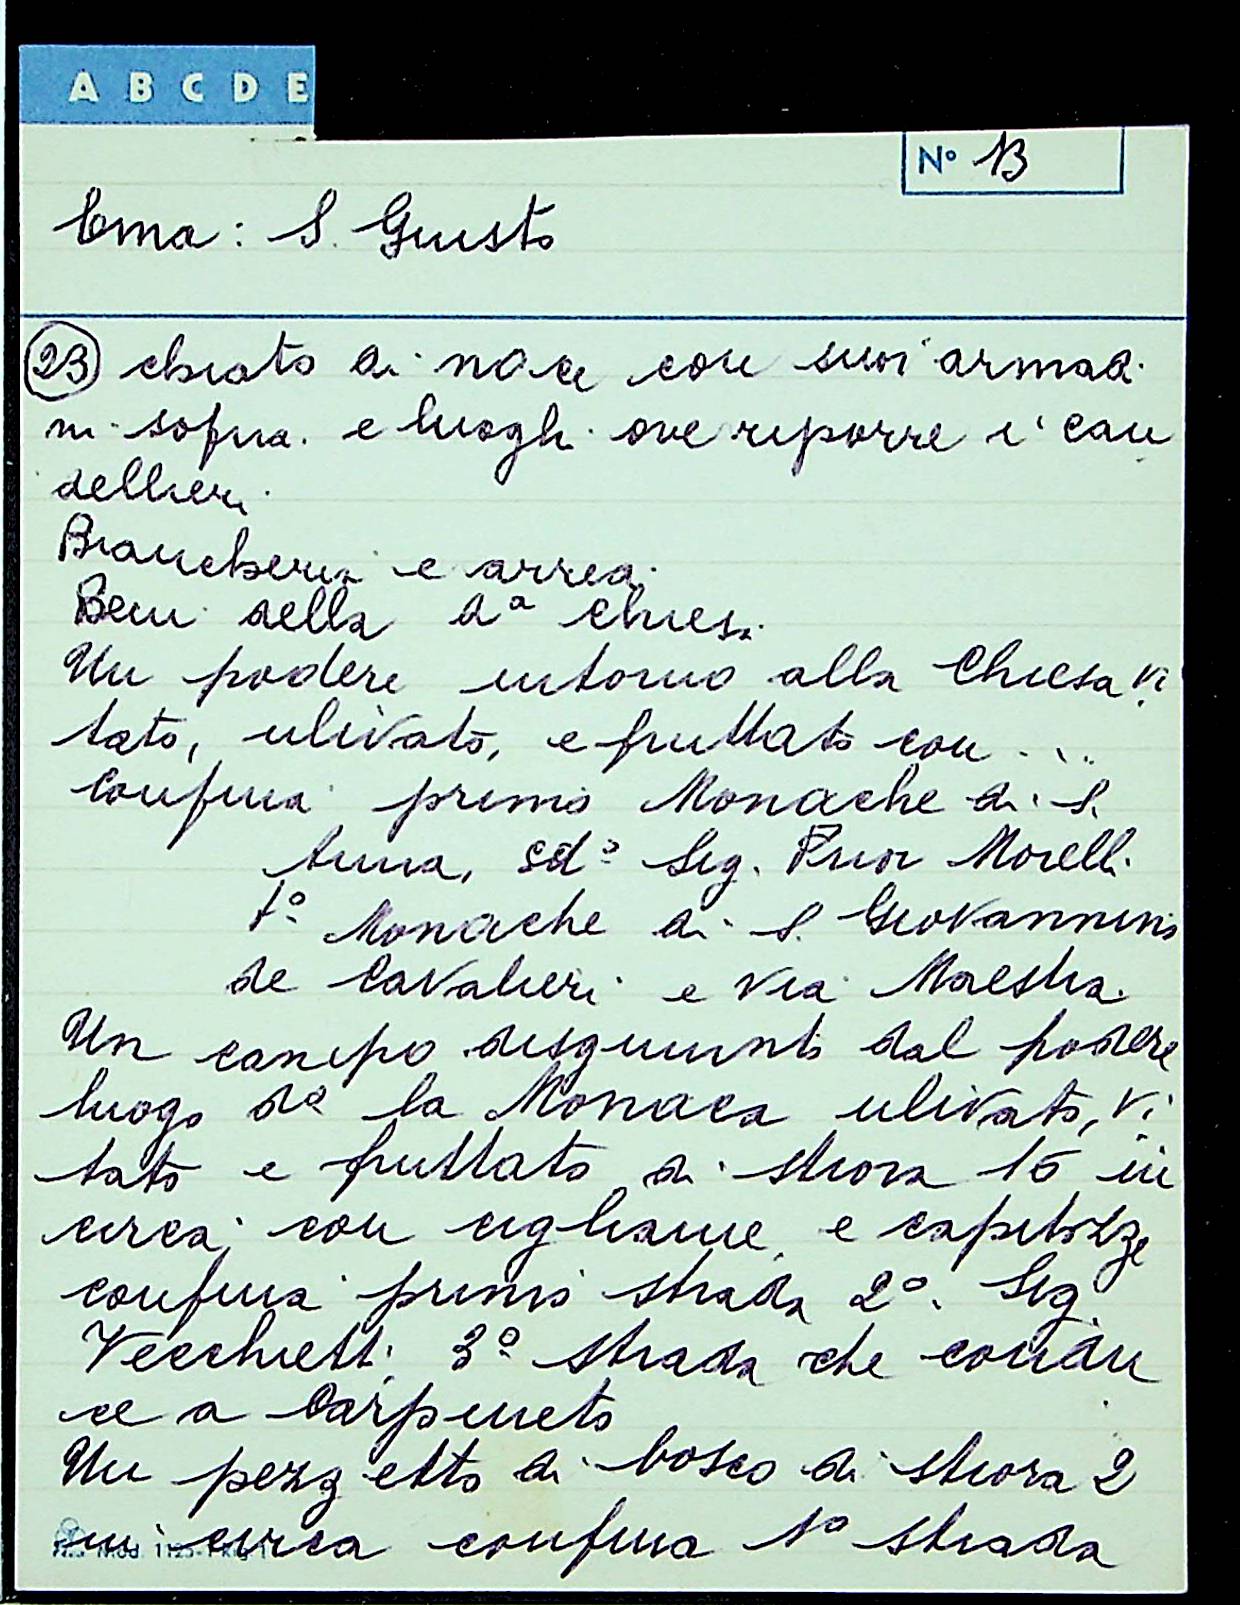 A B C D E
N° 13
Ema: S. Giusto
23 chiato di noce con suoi armadi
ni sopra e luoghi ove riporre i can
dellieri.
Biancheria e arredi
Beni della d.a chiesa.
Un podere intorno alla Chiesa vi
tato, ulivato, e fruttato con ...
confina primo Monache di S.
Anna, sd° Sig. Prior Morelli
t° Monache di S. Giovannino
de Cavalieri e Via Maestra.
Un campo disgiunto dal podere
luogo d° la Monaca ulivato, vi
tato e fruttato di stiora 15 in
circa; con cigliame, e capitozze
confina primo strada 2°. Sig.
Vecchietti 3° strada che condu
ce a Carpineto
Un pezzetto di bosco di stiora 2
in circa confina 1° strada